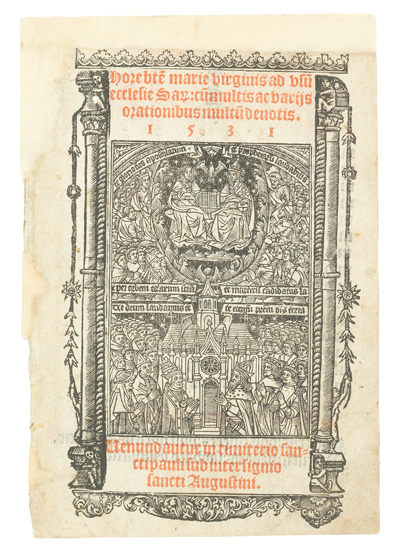 Hore btē marie virginis ad vsū
ecclesie Sar: cū multis ac varijs
orationibus multū deuotis.
1 5 3 1
te per orbem terrarum sctā
te martirū cādidatus lau
te deum laudamus te
te eternū prem oīs terra
Venundantur in cimiterio san-
cti pauli sub intersignio
sancti Augustini.